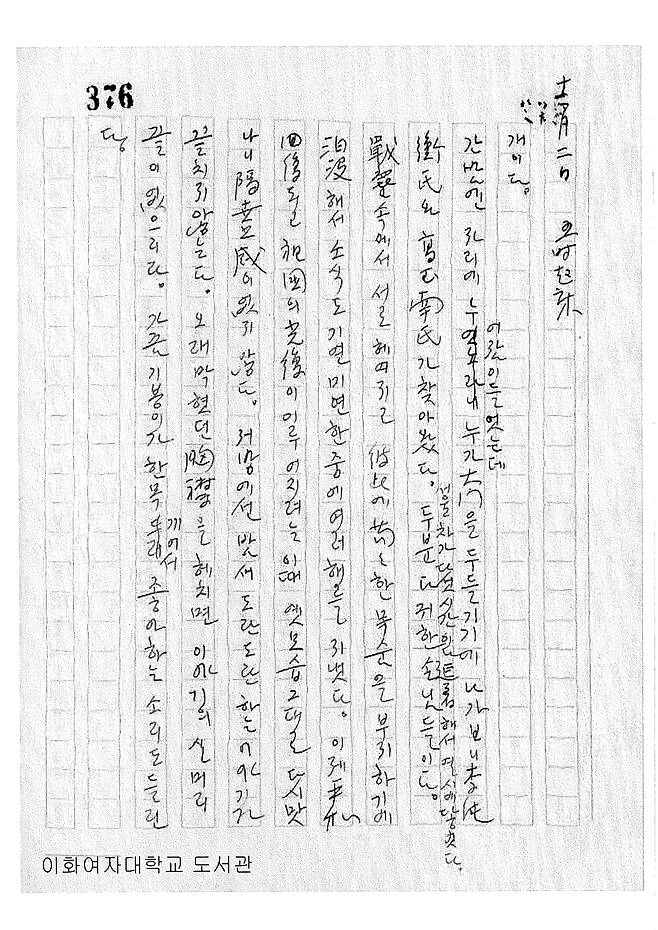 376
十一月二日 五時起床
개이다.
간밤엔 자리에 누 어랐이들엇는데 누가 大門을 두들기기에 나가 보니 李
衡氏와 高 南氏가 찾아왔다. 두분 다 귀한 손님들이다.
서울차가 다섯시간 해서 열시에 닿엇다.
戰塵속에서 서로 헤여지고 彼此에 한 목숨을 부지하기에
汨沒해서 소식도 기연미연한 중에 여러 해를 지냇다. 이제 平和
回復되고 祖國의 光復이 이루어지려는 이때 옛모습 그대로 다시 맛
나니 隔世感이 없지 않다. 저 방에선 밤새 도란도란 하는 이야기가
끝치지 않는다. 오래 막혔던 胸襟을 헤치면 이야기의 실머리
끝이 없으리라. 가끔 기봉이가 한목 깨어서 좋아하는 소리도 들린
다.
이화여자대학교 도서관